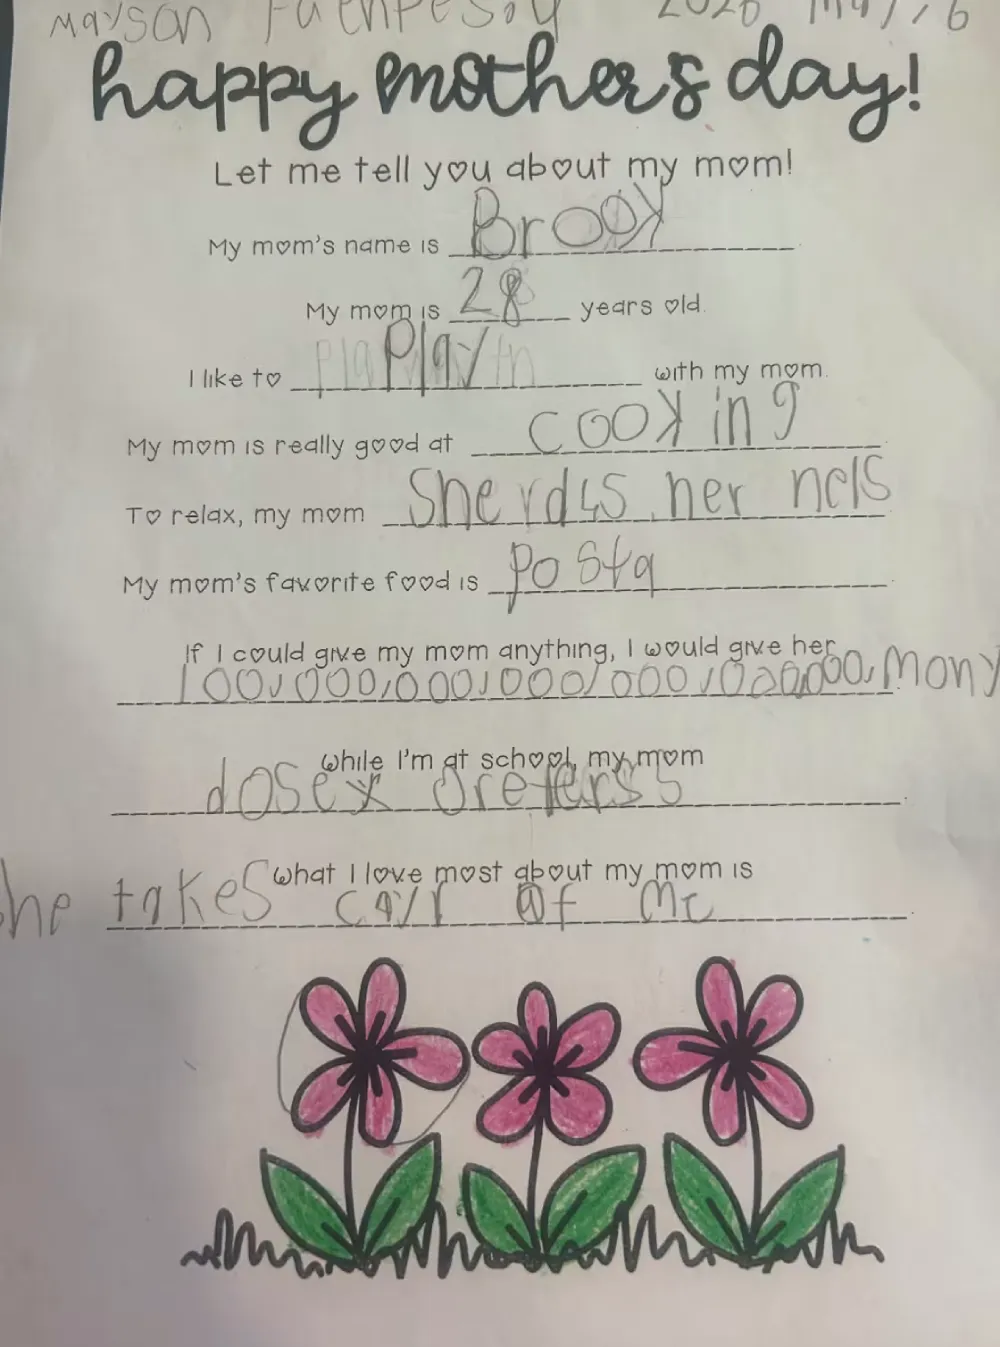 Mayson
happy mother's day!
Let me tell you about my mom!
My mom's name is Brook
My mom is 28 years old.
I like to Play with my mom.
My mom is really good at cooking
To relax, my mom She rdis her nels
My mom's favorite food is posta
If I could give my mom anything, I would give her
100,000,000,000,000,000,000, mony
While I'm at school, my mom
dose
What I love most about my mom is
he takes cayr of me